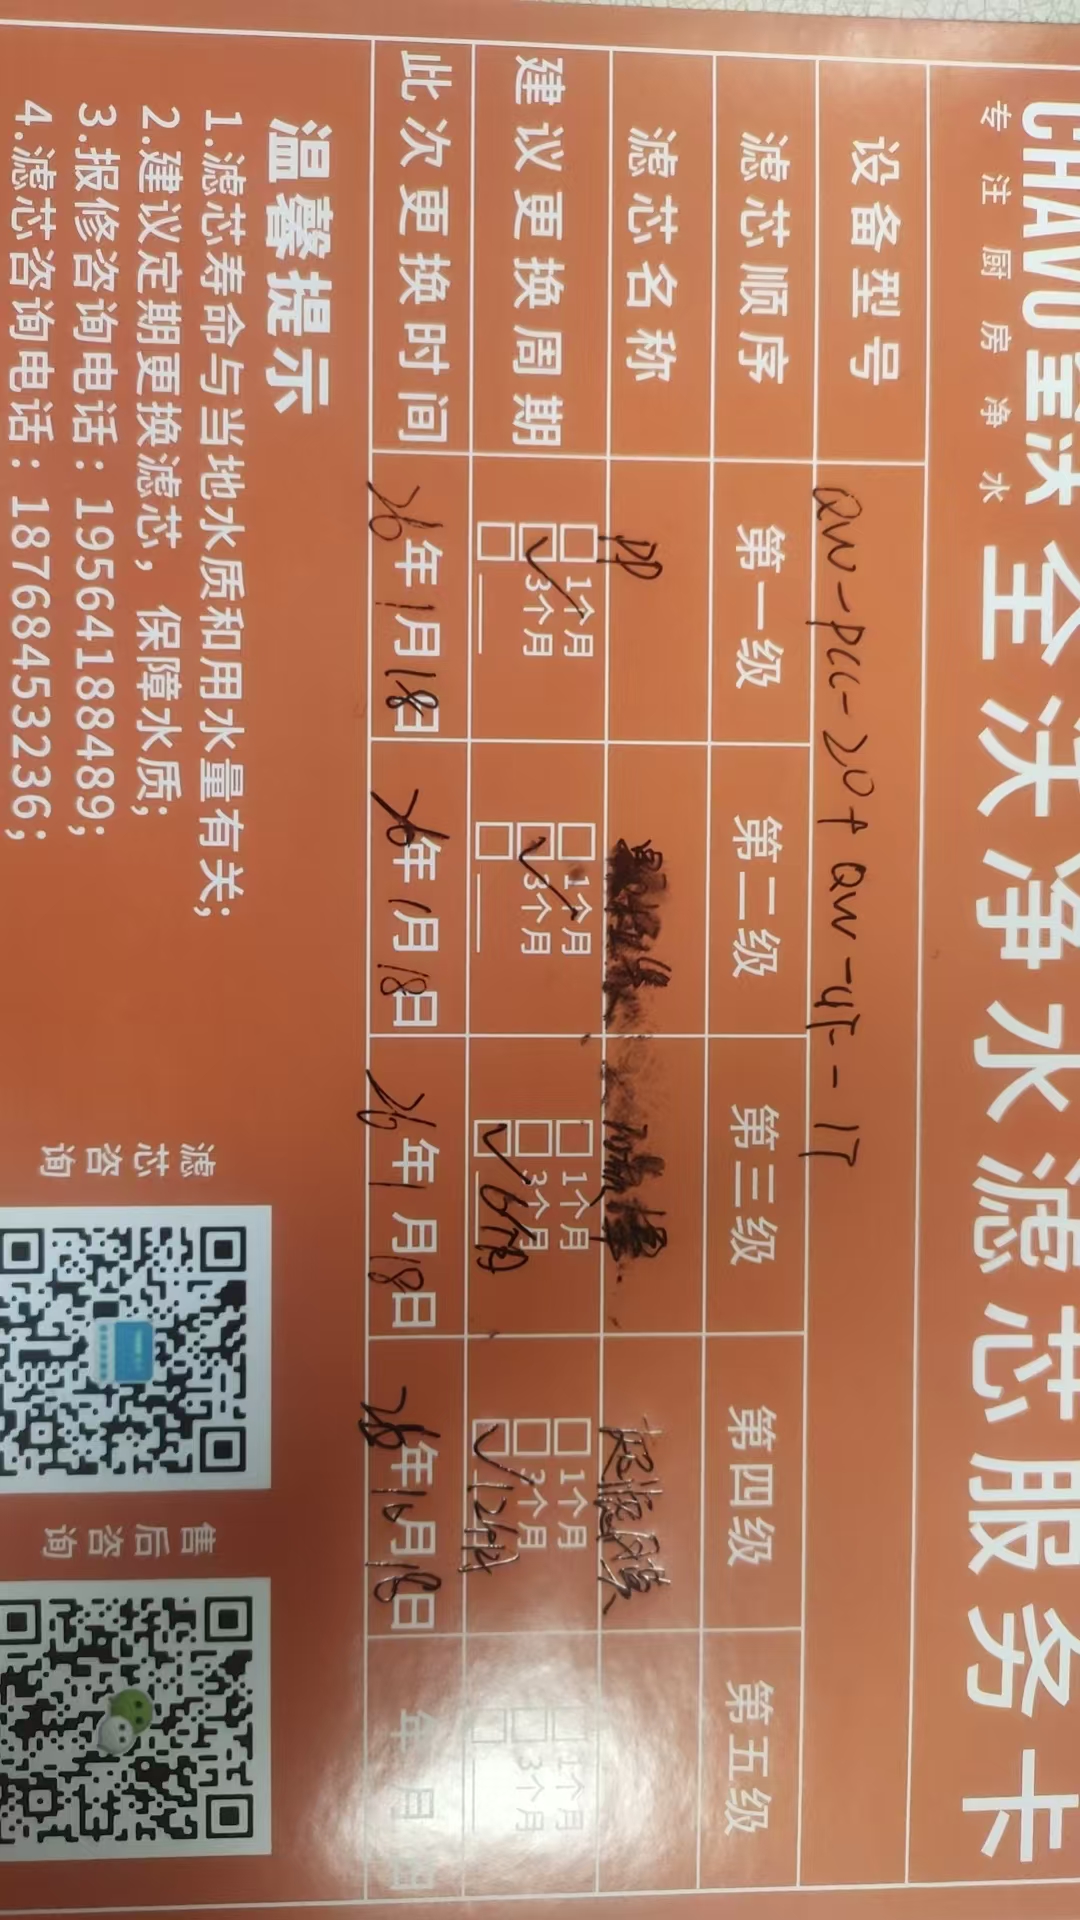 CHAVO 全沃 全沃净水滤芯服务卡
专注厨房净水
设备型号 QW-PCC-20+QW-UF-1T
滤芯顺序 第一级 第二级 第三级 第四级 第五级
滤芯名称 PP 超滤膜
建议更换周期 □1个月 ☑3个月 □ □1个月 ☑3个月 □ □1个月 □3个月 ☑6个月 □1个月 □3个月 ☑12个月 □1个月 □3个月 □
此次更换时间 26年1月18日 26年1月18日 26年1月18日 26年10月18日 年 月 日
温馨提示
1.滤芯寿命与当地水质和用水量有关;
2.建议定期更换滤芯,保障水质;
3.报修咨询电话:19564188489;
4.滤芯咨询电话:18768453236;
滤芯咨询
售后咨询